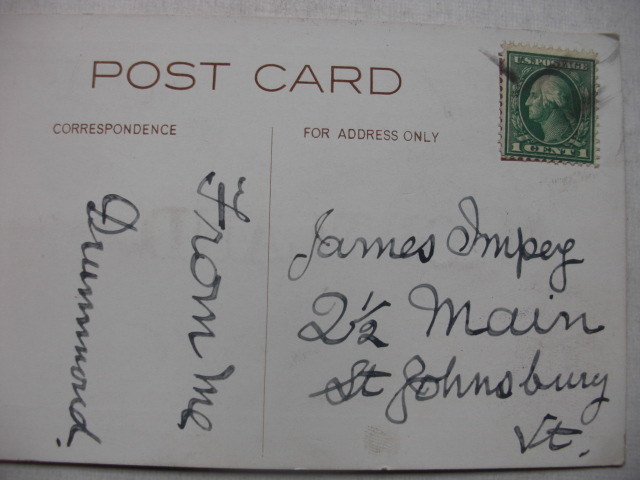 POST CARD
U.S. POSTAGE
1 CENT 1
CORRESPONDENCE
FOR ADDRESS ONLY
From Mr
Drummond.
James Impey
2½ Main
St Johnsbury
Vt.